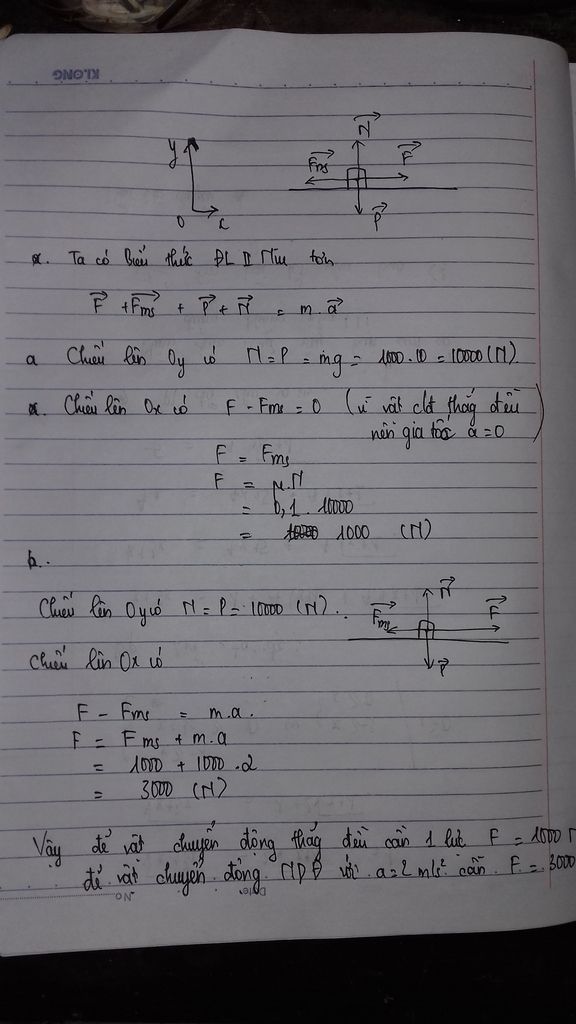 KLONG
y
O x
N
Fms F
P
a. Ta có Biểu thức ĐL II Niu tơn
F + Fms + P + N = m.a
a Chiếu lên Oy có N = P = mg = 1000.10 = 10000 (N)
a. Chiếu lên Ox có F - Fms = 0 (vì vật cđ thẳng đều
nên gia tốc a = 0)
F = Fms
F = μ.N
= 0,1 . 10000
= 1000 (N)
b.
Chiếu lên Oy có N = P = 10000 (N).
N
Fms F
P
Chiếu lên Ox có
F - Fms = m.a.
F = Fms + m.a
= 1000 + 1000.2
= 3000 (N)
Vậy để vật chuyển động thẳng đều cần 1 lực F = 1000 N
để vật chuyển động NDĐ với a = 2 m/s² cần F = 3000
No Date